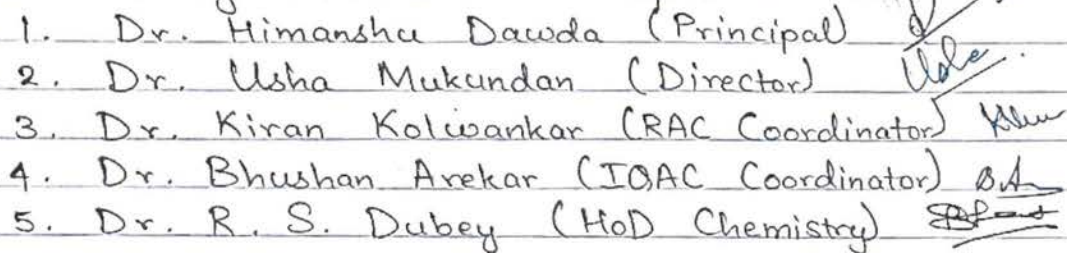 1. Dr. Himanshu Dawda (Principal)
2. Dr. Usha Mukundan (Director)
3. Dr. Kiran Kolwankar (RAC Coordinator)
4. Dr. Bhushan Arekar (IQAC Coordinator) B.A
5. Dr. R. S. Dubey (HoD Chemistry)